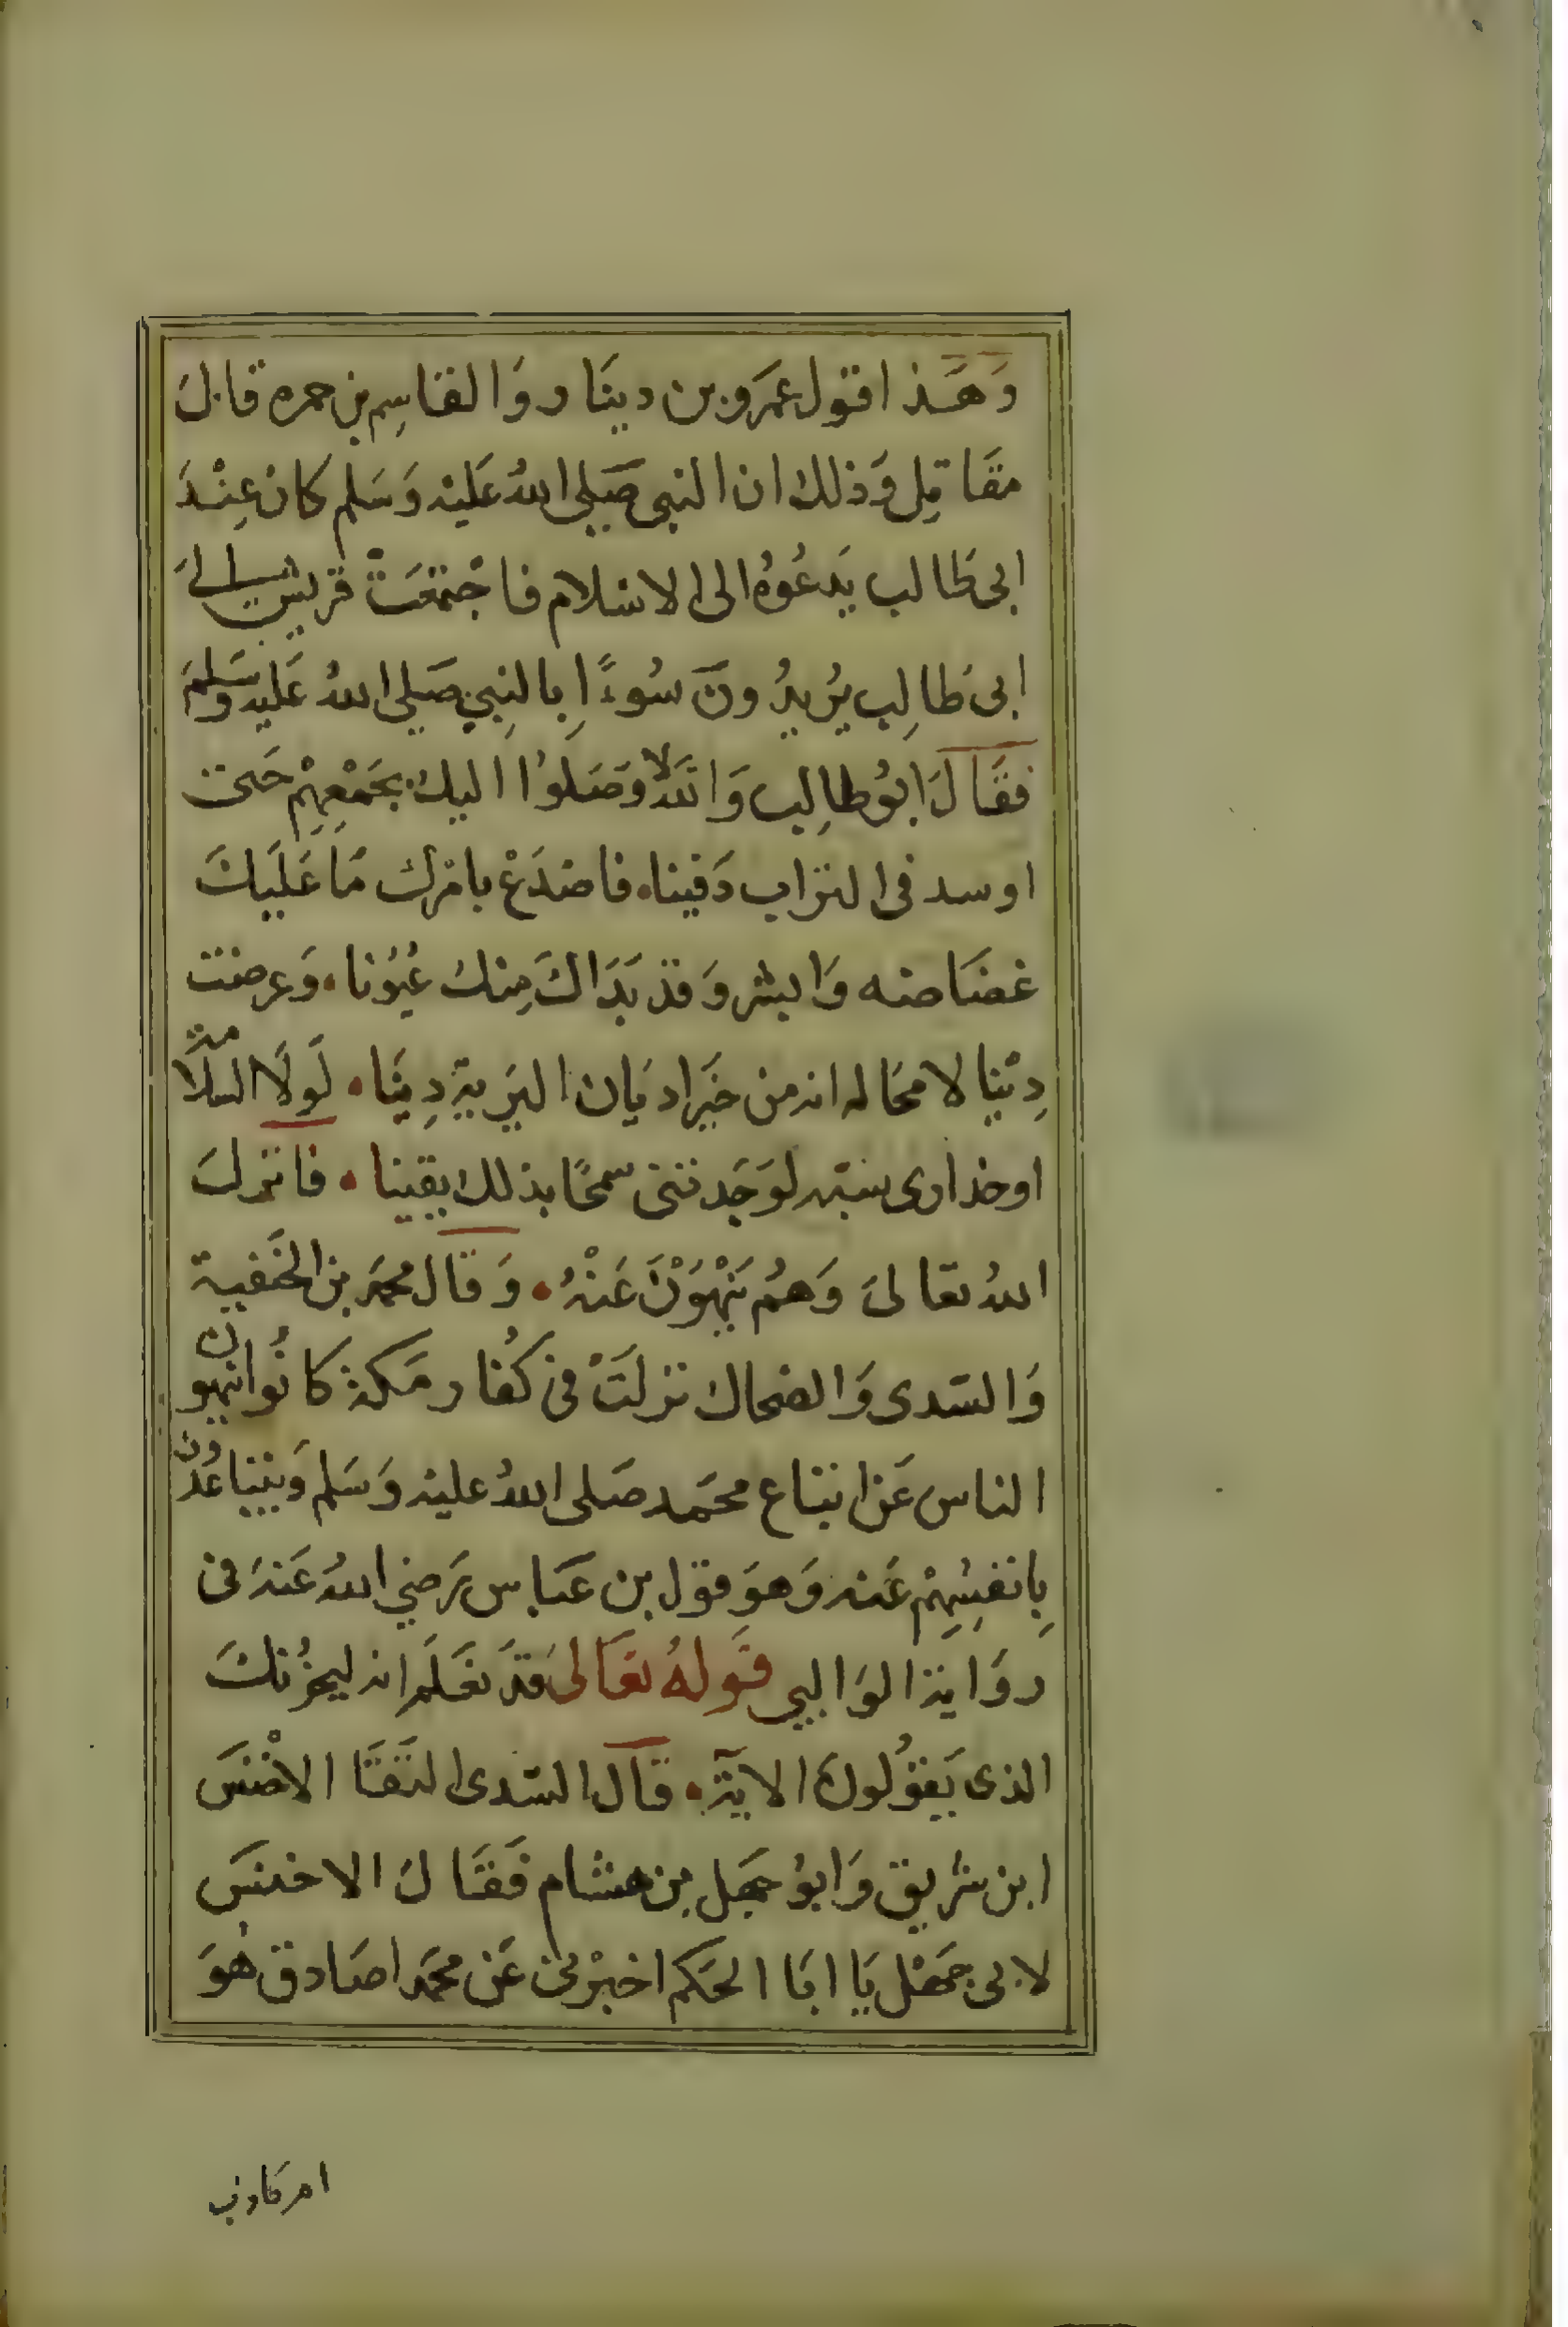 وَهَذا قول عَمرو بن دينَار وَالقاسِم بن حمره قالَ
مقَاتِل وَذلك ان النبى صَلى اللهُ عَليْه وَسَلم كان عِنْدَ
ابى طَالب يَدعُوهُ الى الاسْلام فاجْتمعَتْ قريش الىَ
ابى طَالِب يُريدُونَ سُوءًا بِالنبِي صَلى اللهُ عَليه وَسَلمَ
فقَالَ ابُو طالِب وَاللهِ لا وَصَلوُا اليك بجَمْعِهِمْ حَتى
اوسد فى التراب دَفينا، فاصْدَعْ بامْرك مَا عَلَيكَ
غضَاضه وَابشر وَقدْ بَدَاكَ مِنكَ عُيُونا، وَعرضت
دِيْنا لا محَاله انه من خَيَر ادْيان البَرية دِينَا، لَولا الملامَة
اوخذارى سبّه لوَجَدتنى سمحًا بذلك يقينا، فانزلَ
اللهُ تعالىَ وَهُم يَنْهَوْنَ عَنْهُ، وَقال محمد بن الحَنفية
وَالسّدى وَالضحاك نزلَتْ فى كفُار مَكة كانُوا ينهون
الناس عَن اتباع محَمد صَلى اللهُ عليْه وَسَلم وَيتباعَدُون
بِانفسِهِمْ عَنه وَهوَ قول بن عَباس رَضي اللهُ عَنهَ فى
روَاية الوَالبي قَولهُ تعَالىَ قدَ نعَلَم انه ليحزُنكَ
الذى يَقوُلونَ الايَة، قال السّدى التَقَا الاخْنسَ
ابن شريق وَابوُ جهَل بن هشام فَقَالَ الاخنسَ
لابى جَهْل يَا ابَا الحَكم اخبرْنى عَن محمَد اصَادق هُوَ
امر كاذب